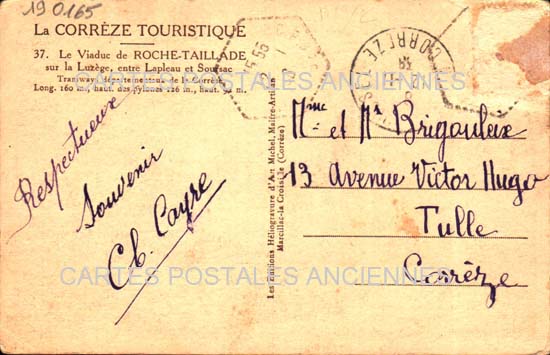 19 0165
La CORRÈZE TOURISTIQUE
37. Le Viaduc de ROCHE-TAILLADE
sur la Luzège, entre Lapleau et Soursac
Tramways départementaux de la Corrèze
Long. 160 m., haut. des pylones 126 m., haut. m.
Respectueux
Souvenir
Ch. Cayre
Les Editions Héliogravure d'Art Michel, Maître-Artisan
Marcillac-la Croisille (Corrèze)
CORRÈZE
Mme et Mr Brigouleix
13 Avenue Victor Hugo
Tulle
Corrèze
CARTES POSTALES ANCIENNES
CARTES POSTALES ANCIENNES